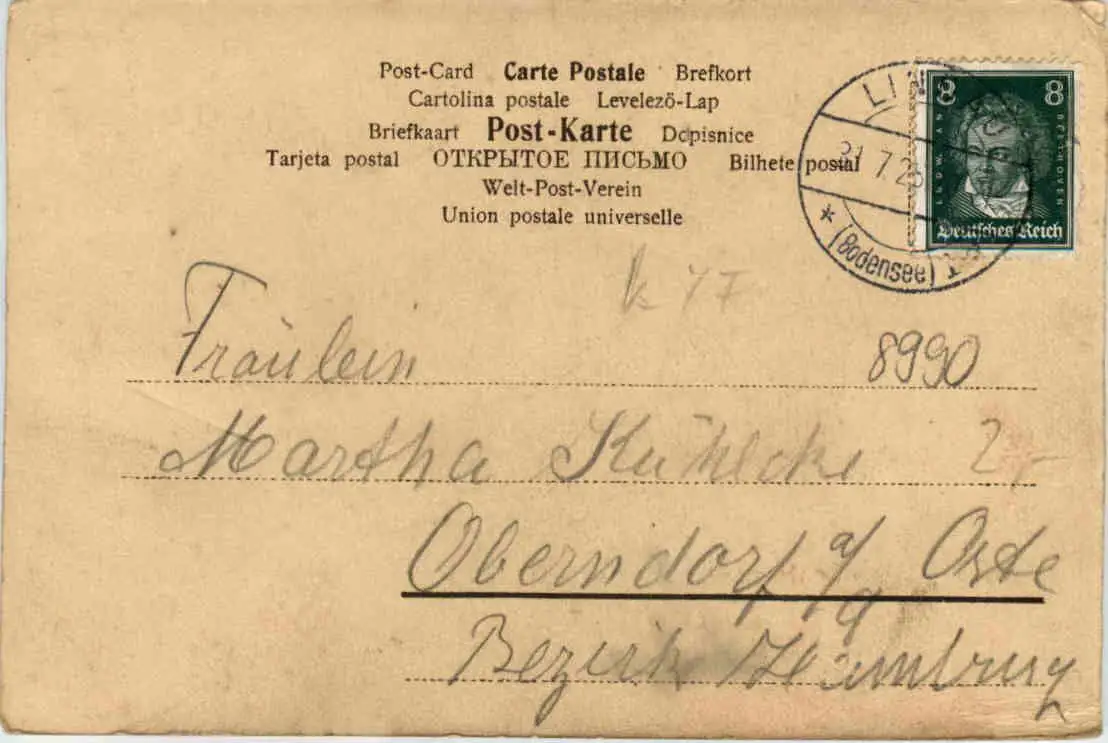 Post-Card Carte Postale Brefkort
Cartolina postale Levelező-Lap
Briefkaart Post-Karte Dopisnice
Tarjeta postal ОТКРЫТОЕ ПИСЬМО Bilhete postal
Welt-Post-Verein
Union postale universelle
8 8
LUDW. VAN BEETHOVEN
Deutsches Reich
(Bodensee)
k 47
Fräulein
8990
Martha Kühlcke 2-
Oberndorf a/d Oste
Bezirk Hamburg